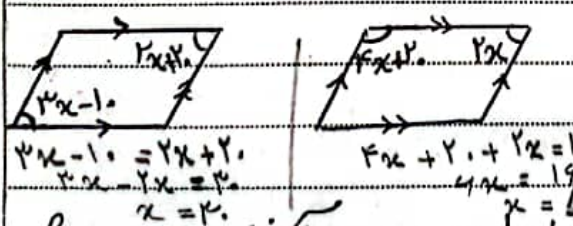 ۲x+۲۰
۳x-۱۰
۳x-۱۰ = ۲x+۲۰
۳x-۲x = ۳۰
x = ۳۰
۴x+۲۰
۲x
۴x+۲۰+۲x=۱
۶x = ۱۶
x =